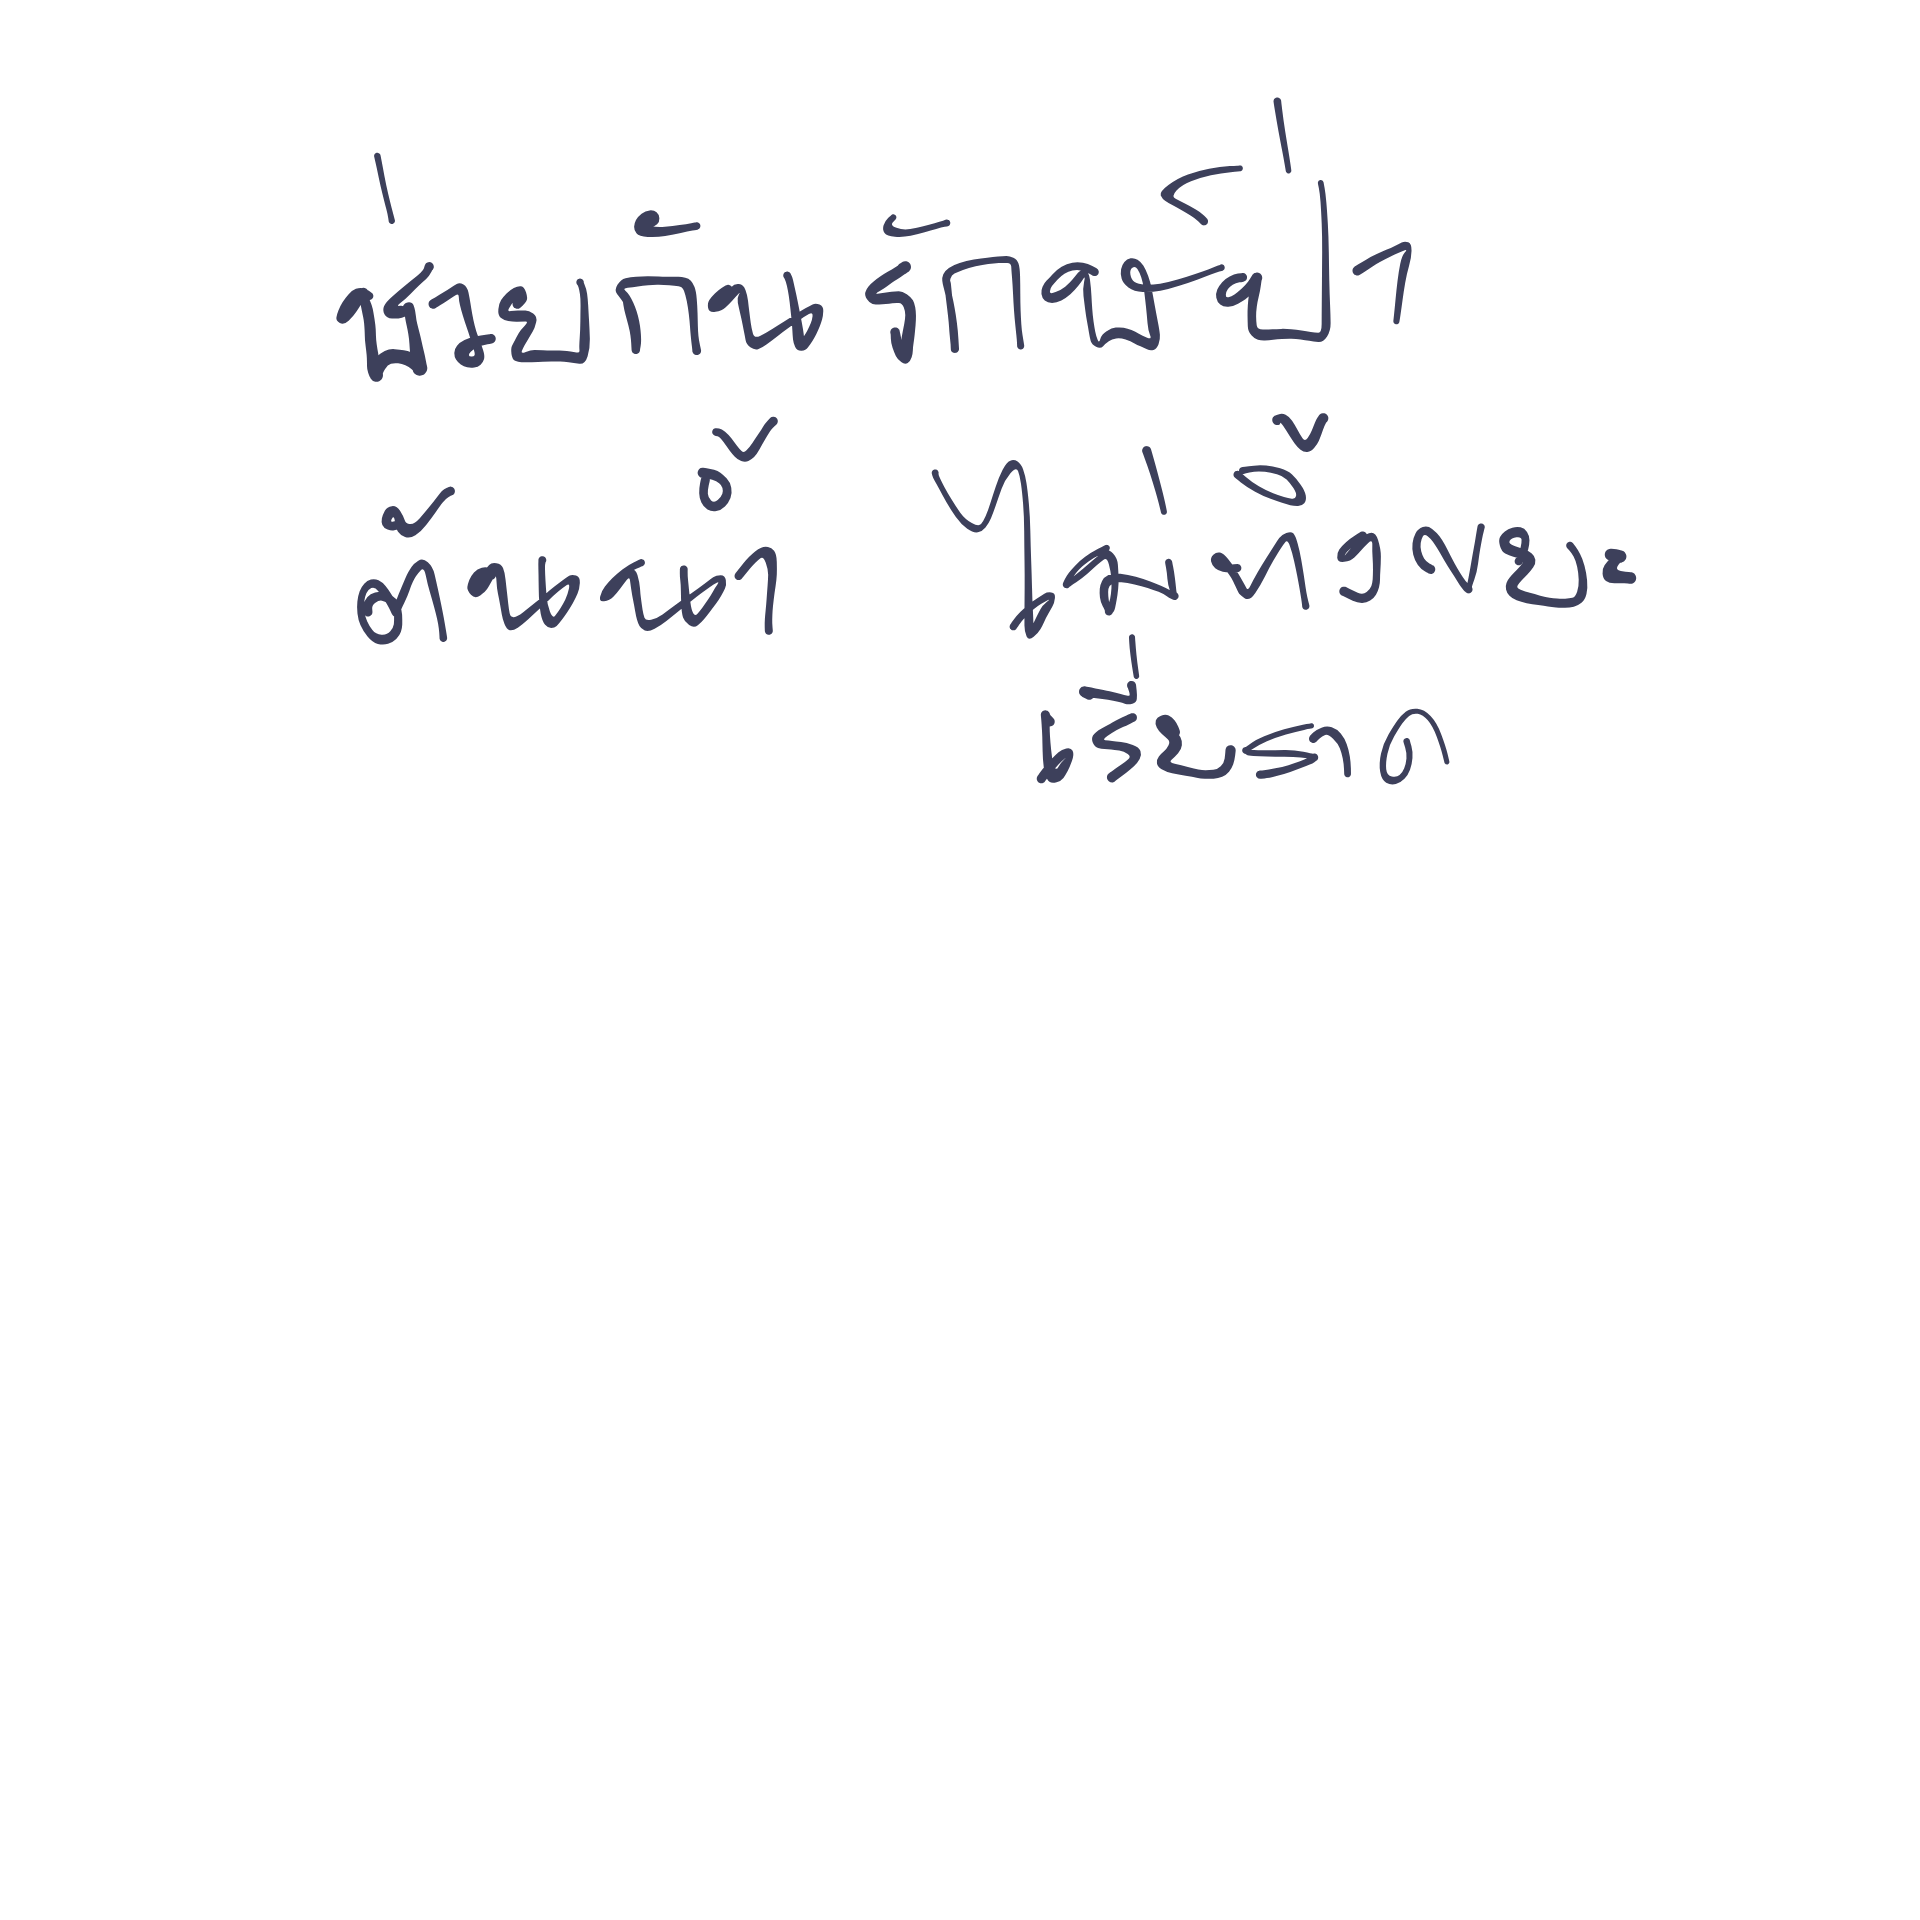 ช่วยกันรักษ์ป่า
ต้นน้ำ ไม่ทิ้งขยะ
เรี่ยราด